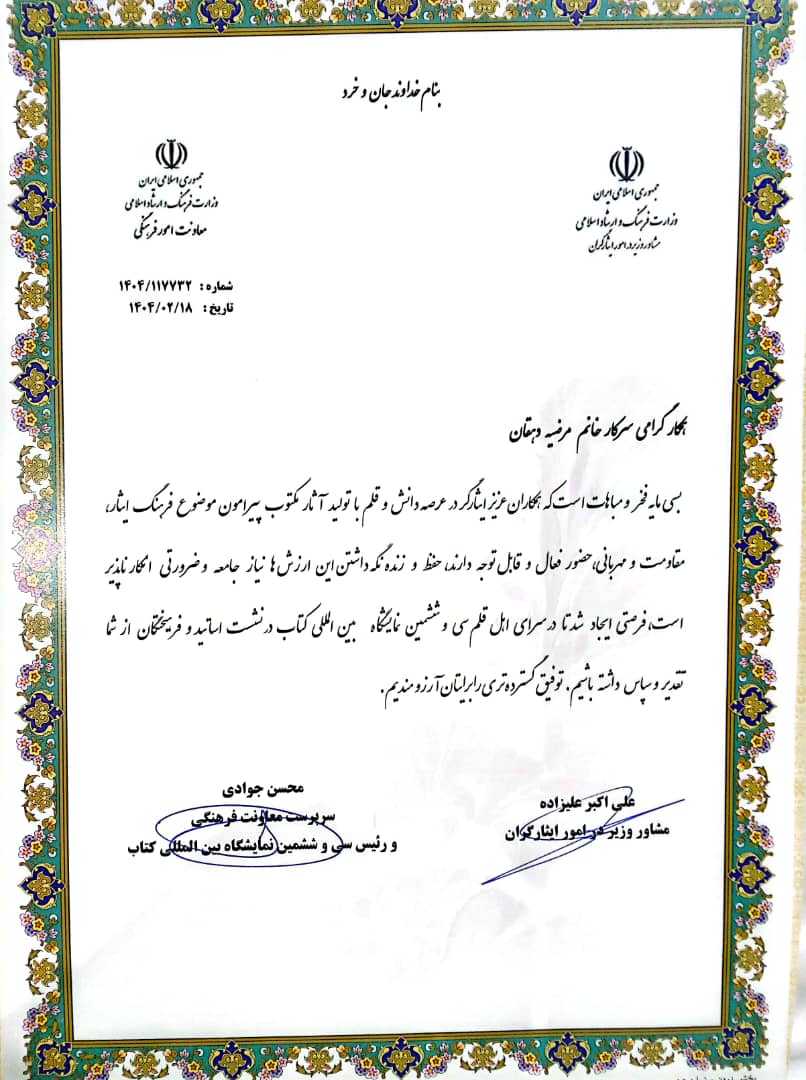 بنام خداوند جان و خرد
جمهوری اسلامی ایران
وزارت فرهنگ و ارشاد اسلامی
مشاور وزیر در امور ایثارگران
جمهوری اسلامی ایران
وزارت فرهنگ و ارشاد اسلامی
معاونت امور فرهنگی
شماره: ۱۴۰۴/۱۱۷۷۳۲
تاریخ: ۱۴۰۴/۰۲/۱۸
همکار گرامی سرکار خانم مرضیه دهقان
بسی مایه فخر و مباهات است که همکاران عزیز ایثارگر در عرصه دانش و قلم با تولید آثار مکتوب پیرامون موضوع فرهنگ ایثار،
مقاومت و مهربانی، حضور فعال و قابل توجه دارند، حفظ و زنده نگه داشتن این ارزش ها نیاز جامعه و ضرورتی انکار ناپذیر
است، فرصتی ایجاد شد تا در سرای اهل قلم سی و ششمین نمایشگاه بین المللی کتاب در نشست اساتید و فرهیختگان از شما
تقدیر و سپاس داشته باشیم. توفیق گسترده تری را برایتان آرزومندیم.
علی اکبر علیزاده
مشاور وزیر در امور ایثارگران
محسن جوادی
سرپرست معاونت فرهنگی
و رئیس سی و ششمین نمایشگاه بین المللی کتاب